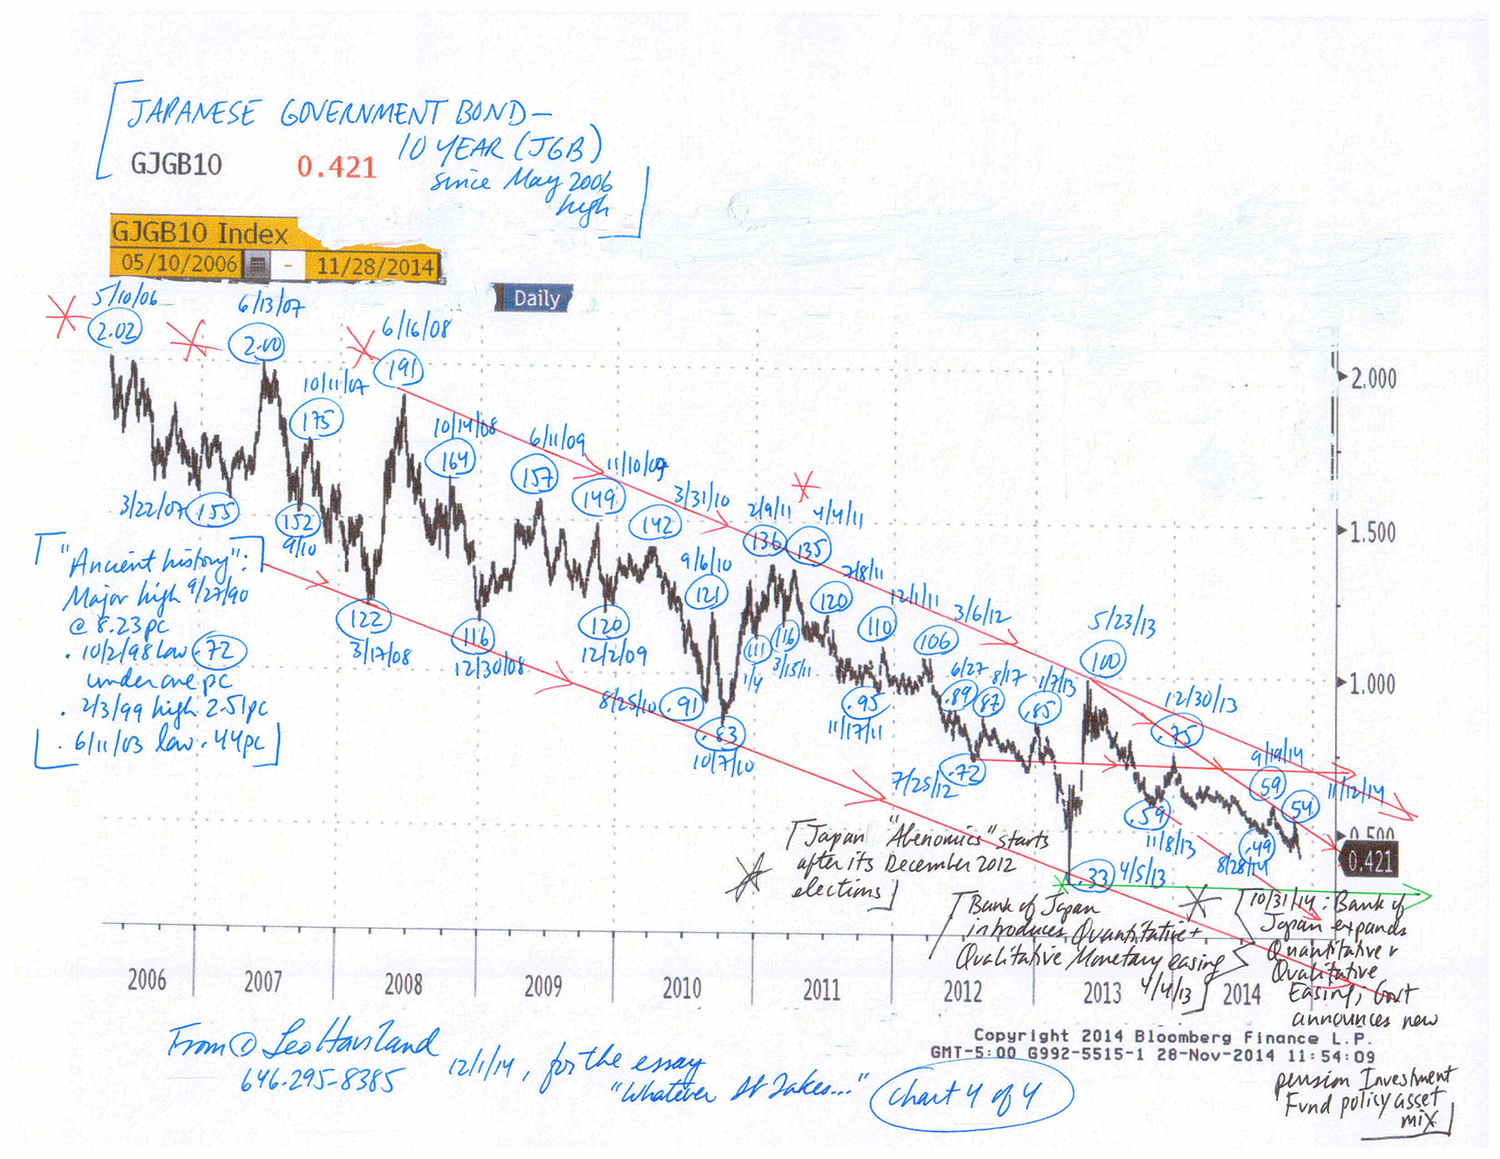 JAPANESE GOVERNMENT BOND —
10 YEAR (JGB)
GJGB10 0.421
since May 2006
high
GJGB10 Index
05/10/2006 - 11/28/2014
Daily
5/10/06
2.02
6/13/07
2.00
6/16/08
191
10/11/07
175
10/14/08
164
6/11/09
157
11/10/09
149
3/31/10
142
2/9/11
136
4/4/11
135
3/22/07
155
152
9/10
9/6/10
121
7/8/11
120
12/1/11
110
3/6/12
106
5/23/13
100
122
3/17/08
116
12/30/08
120
12/2/09
111
1/4
116
3/15/11
8/25/10
.91
.83
10/7/10
.95
11/17/11
6/27
.89
8/17
.87
1/7/13
.85
12/30/13
.75
7/25/12
.72
9/19/14
59
11/12/14
54
.59
11/8/13
.49
8/28/14
.33
4/5/13
2.000
1.500
1.000
0.500
0.421
"Ancient history":
Major high 9/27/90
@ 8.23pc
. 10/2/98 low .72
under one pc
. 2/3/99 high 2.51pc
. 6/11/03 low .44pc
Japan "Abenomics" starts
after its December 2012
elections
Bank of Japan
introduces Quantitative +
Qualitative Monetary easing
4/4/13
10/31/14: Bank of
Japan expands
Quantitative +
Qualitative
Easing; Govt
announces new
pension Investment
Fund policy asset
mix
2006 2007 2008 2009 2010 2011 2012 2013 2014
Copyright 2014 Bloomberg Finance L.P.
GMT-5:00 G992-5515-1 28-Nov-2014 11:54:09
From © Leo Haviland
646-295-8385
12/1/14, for the essay
"Whatever It Takes..."
Chart 4 of 4